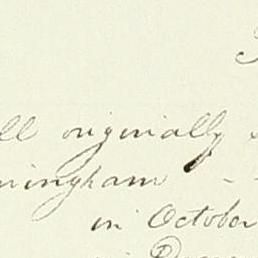 ll originally
ningham - -
in October